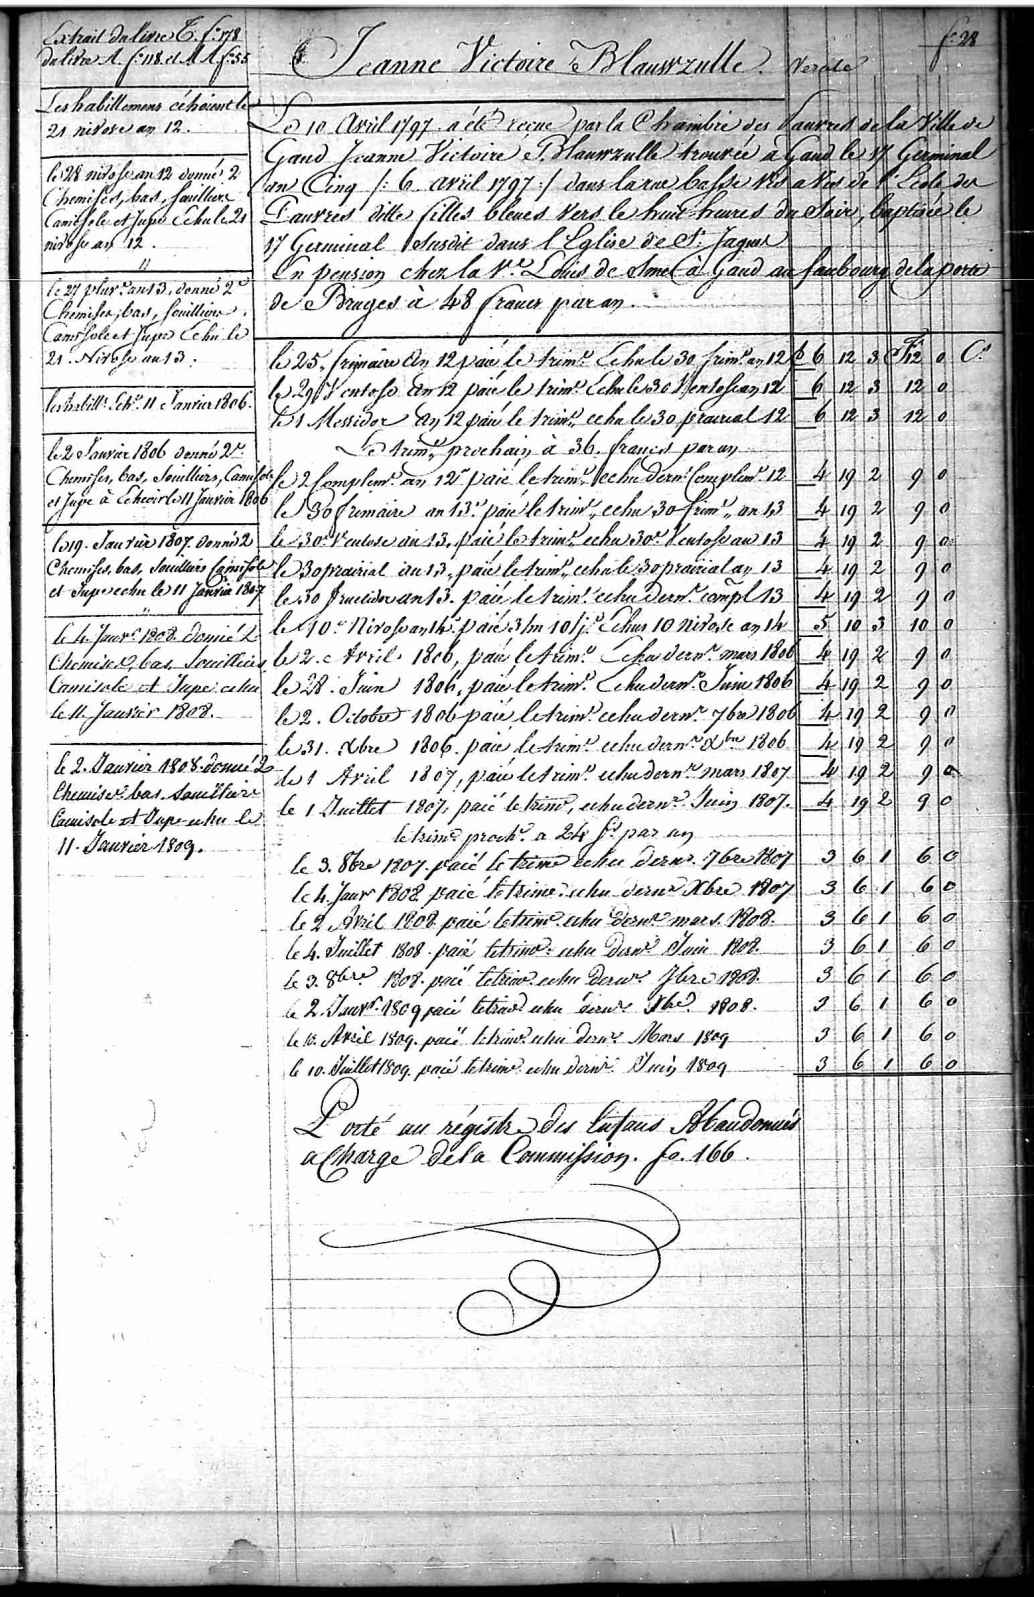 Extrait du livre T. f.º 178
du livre A. f.º 118 et AA f.º 55
f.º 28
Jeanne Victoire Blauwzulle.
Les habillemens échoient le
21 nivose an 12.
le 28 nivose an 12 donné 2
Chemises, bas, souilliers
Camisole et Jupe Echu le 21
nivose an 12.
le 27 pluv.e an 13, donné 2
Chemises, bas, souilliers,
Camisole et Jupe Echu le
21 Nivose an 13.
les habill.s Ech.s 11 Janvier 1806.
le 2 Janvier 1806 donné 2
Chemises, bas, Souilliers, Camisole
et Jupe à Echeoir le 11 Janvier 1806
le 19. Janvier 1807. Donné 2
Chemises, bas, Souilliers Camisole
et Jupe echu le 11 Janvier 1807
le 4. Janv.r 1808. donné 2
Chemises, bas, Souilliers,
Camisole et Jupe echu
le 11. Janvier 1808.
le 2. Janvier 1808. donné 2
Chemises bas Souilliers
Camisole et Jupe echu le
11. Janvier 1809.
Le 10 Avril 1797 a été reçue par la Chambre des Pauvres de la Ville de
Gand Jeanne Victoire Blauwzulle trouvée à Gand le 17 Germinal
an Cinq /: 6 avril 1797 :/ dans la rue basse vis a vis de l'Ecole des
Pauvres dille filles bleues vers le huit heures du Soir, baptisée le
17 Germinal Susdit dans l'Eglise de S.t Jaques
En pension chez la V.e Louis de Smet à Gand au faubourg de la porte
de Bruges à 48 francs par an.
le 25. frimaire an 12 paié le trim.e Echu le 30 frim.e an 12 £ 6 12 3 F.s 12 0 C.s
le 29 Ventose an 12 paié le trim.e Echu le 30 Ventose an 12 6 12 3 12 0
le 1 Messidor an 12 paié le trim.e echu le 30 prairial 12 6 12 3 12 0
Le trim.e prochain à 36. francs par an
le 2 Complem.e an 12 paié le trim.e echu dern.r Complem.e 12 4 19 2 9 0
le 30 frimaire an 13 paié le trim.e echu 30 frim.e an 13 4 19 2 9 0
le 30 Ventose an 13, paié le trim.e echu 30 Ventose an 13 4 19 2 9 0
le 30 prairial an 13, paié le trim.e echu le 30 prairial an 13 4 19 2 9 0
le 30 fructidor an 13. paié le trim.e echu dern.r compl 13 4 19 2 9 0
le 10 Nivose an 14 paié 3 m 10 j.s Echus 10 Nivose an 14 5 10 3 10 0
le 2. Avril 1806, paié le trim.e Echu dern.r mars 1806 4 19 2 9 0
le 28. Juin 1806, paié le trim.e Echu dern.r Juin 1806 4 19 2 9 0
le 2. Octobre 1806 paié le trim.e echu dern.r 7bre 1806 4 19 2 9 0
le 31. Xbre 1806. paié le trim.e echu dern.r Xbre 1806 4 19 2 9 0
le 1 Avril 1807, paié le trim.e echu dern.r mars 1807 4 19 2 9 0
le 1 Juillet 1807, paié le trim.e echu dern.r Juin 1807. 4 19 2 9 0
le trim.e proch.n a 24 f.s par an
le 3. 8bre 1807. paié le trim.e echu dern.r 7bre 1807 3 6 1 6 0
le 4. Janv.r 1808. paié le trim.e echu dern.r Xbre 1807 3 6 1 6 0
le 2 Avril 1808. paié le trim.e echu dern.r mars. 1808. 3 6 1 6 0
le 4. Juillet 1808. paié le trim.e echu dern.r Juin 1808. 3 6 1 6 0
le 3. 8bre 1808. paié le trim.e echu dern.r 7bre 1808. 3 6 1 6 0
le 2. Janv.r 1809 paié le trim.e echu dern.r Xbre 1808. 3 6 1 6 0
le 10. Avril 1809. paié le trim.e echu dern.r Mars 1809 3 6 1 6 0
le 10. Juillet 1809. paié le trim.e echu dern.r Juin 1809 3 6 1 6 0
Porté au régistre des Enfans Abandonnés
a Charge de la Commission. fo. 166.